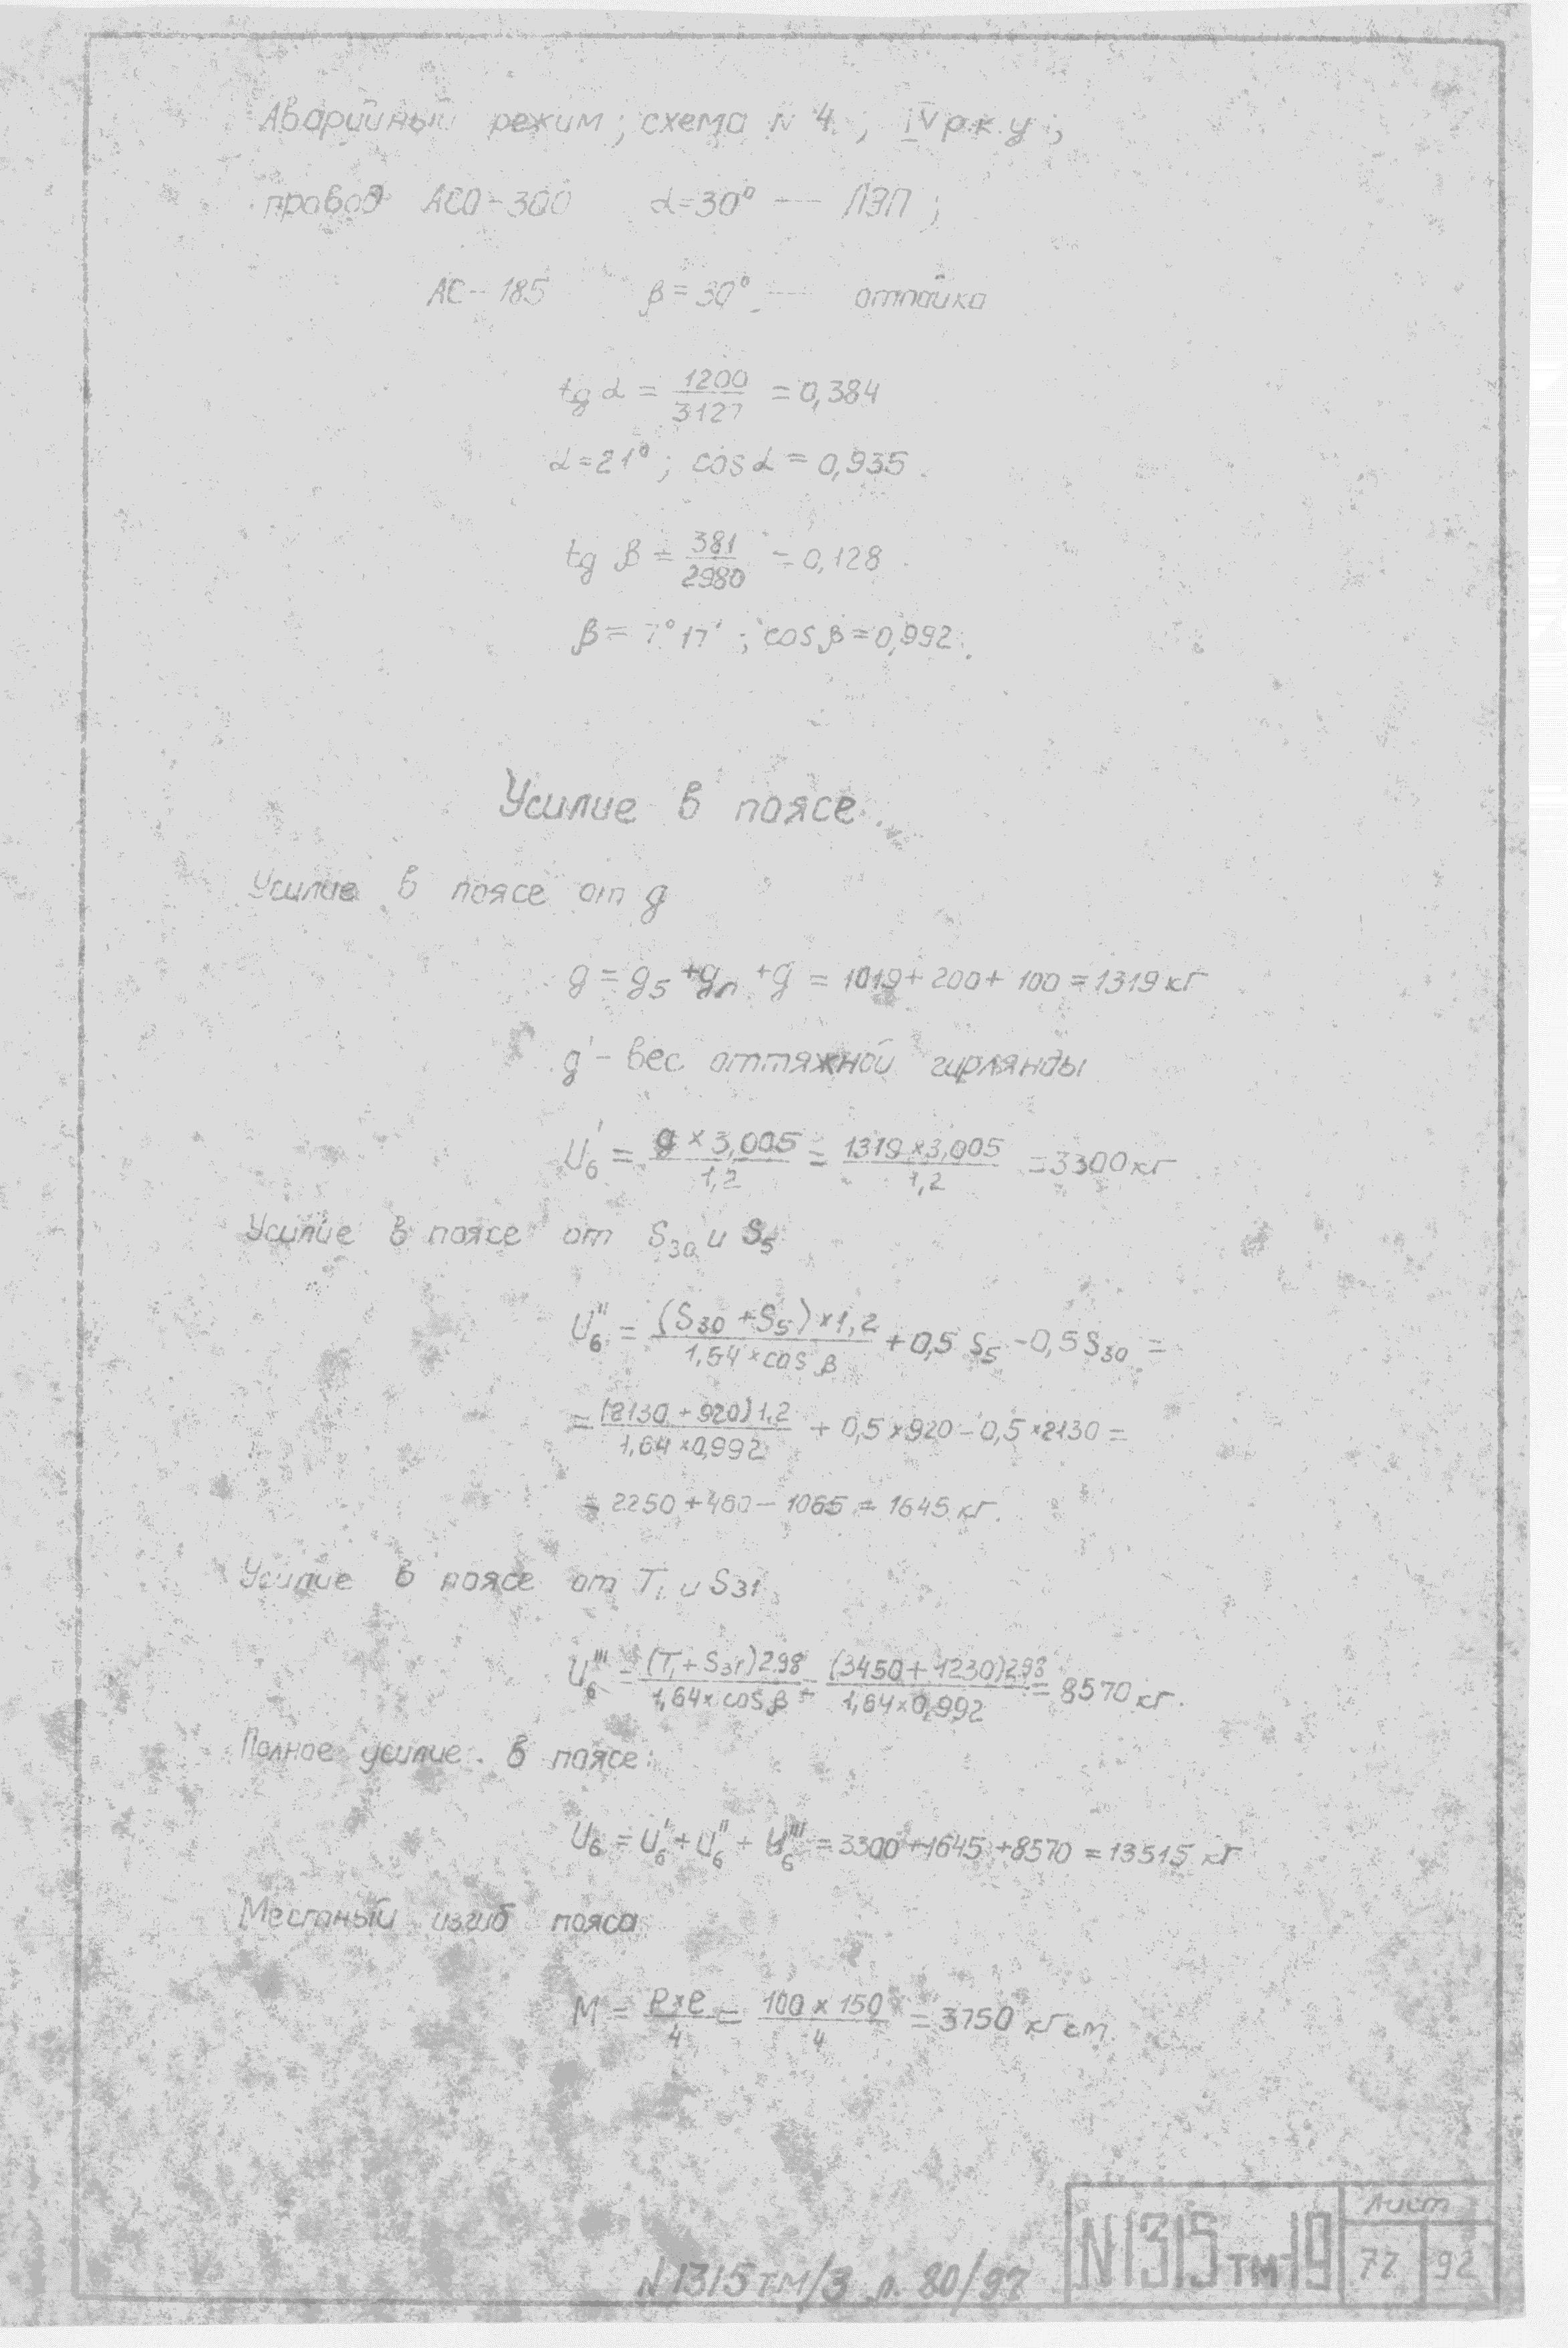 Аварийный режим; схема N 4; IV р.к.у;
провод АСО-300 α=30° — ЛЭП;
АС-185 β=30° — отпайка
tg α = 1200/3127 = 0,384
α=21°; cos α = 0,935.
tg β = 381/2980 = 0,128
β = 7°17'; cos β = 0,992.
Усилие в поясе.
Усилие в поясе от g
g = g5 + gп + g = 1019 + 200 + 100 = 1319 кг
g' - вес оттяжной гирлянды
U6' = g × 3,005 / 1,2 = 1319 × 3,005 / 1,2 = 3300 кг
Усилие в поясе от S30 и S5
U6'' = (S30 + S5) × 1,2 / 1,64 × cos β + 0,5 S5 - 0,5 S30 =
= (2130 + 920) 1,2 / 1,64 × 0,992 + 0,5 × 920 - 0,5 × 2130 =
= 2250 + 460 - 1065 = 1645 кг.
Усилие в поясе от T1 и S31
U6''' = (T1 + S31) 2.98 / 1,64 × cos β = (3450 + 1230) 2.98 / 1,64 × 0,992 = 8570 кг.
Полное усилие в поясе:
U6 = U6' + U6'' + U6''' = 3300 + 1645 + 8570 = 13515 кг
Местный изгиб пояса
M = P × e / 4 = 100 × 150 / 4 = 3750 кг см
N1315тм-19
Лист
77 92
N1315тм/3 л. 80/97